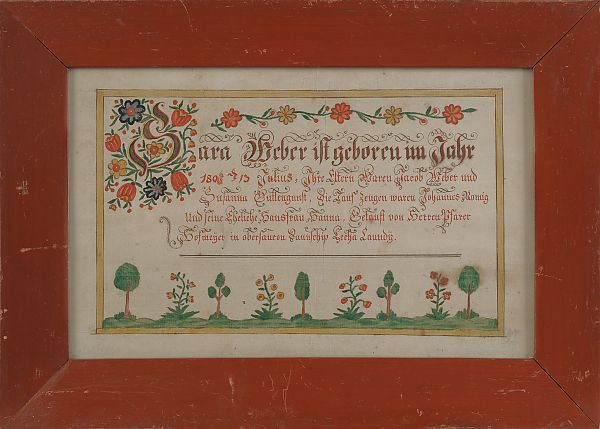 Sara Weber ist geboren im Jahr
180 13 Julius, Ihre Eltern Waren Jacob Weber und
Susanna Guttengunst, Die Tauf Zeugen waren Johannes Romig
Und seine Eheliche Hausfrau Hanna, Getauft von Herren Pfarer
in obersaucon Taunschip Lecha Caundy.